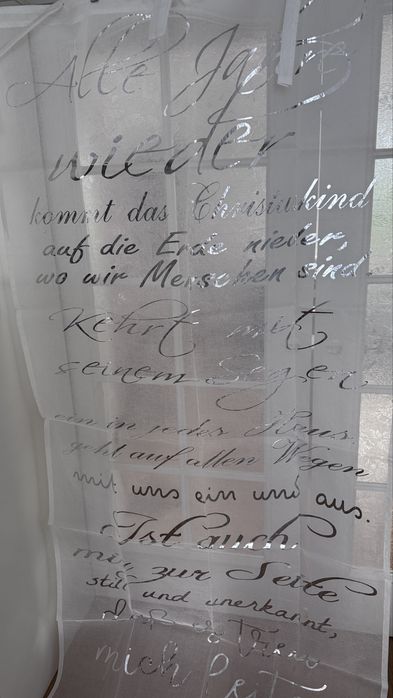 Alle Jahre
wieder
kommt das Christuskind
auf die Erde nieder,
wo wir Menschen sind.
Kehrt mit
seinem Segen
ein in jedes Haus,
geht auf allen Wegen
mit uns ein und aus.
Ist auch
mir zur Seite
still und unerkannt,
daß es treu
mich